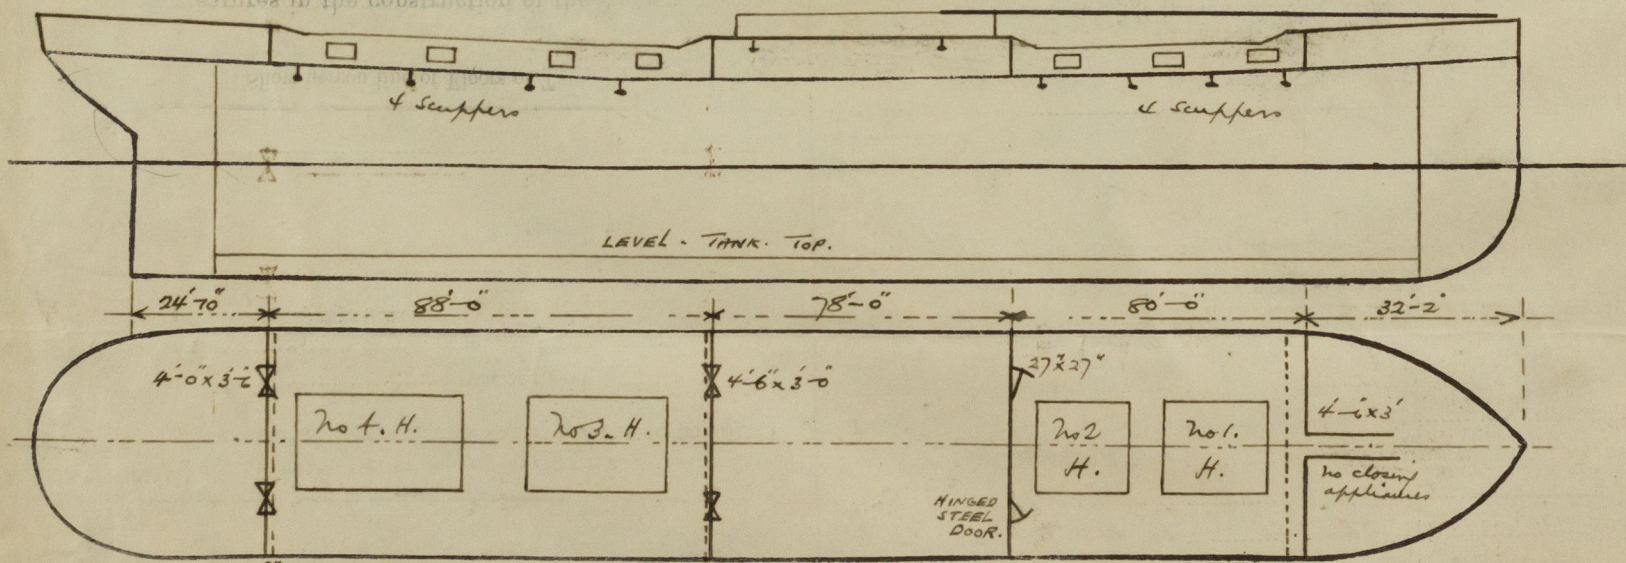 4 Scuppers
4 Scuppers
LEVEL - TANK. TOP.
24'-10"
88'-0"
78'-0"
80'-0"
32'-2"
4'-0" x 3'-6
4'-6" x 3'-0"
27" x 27"
4'-6 x 3'
No 4. H.
No 3. H.
No 2
H.
No 1.
H.
No closing
appliances
HINGED
STEEL
DOOR.